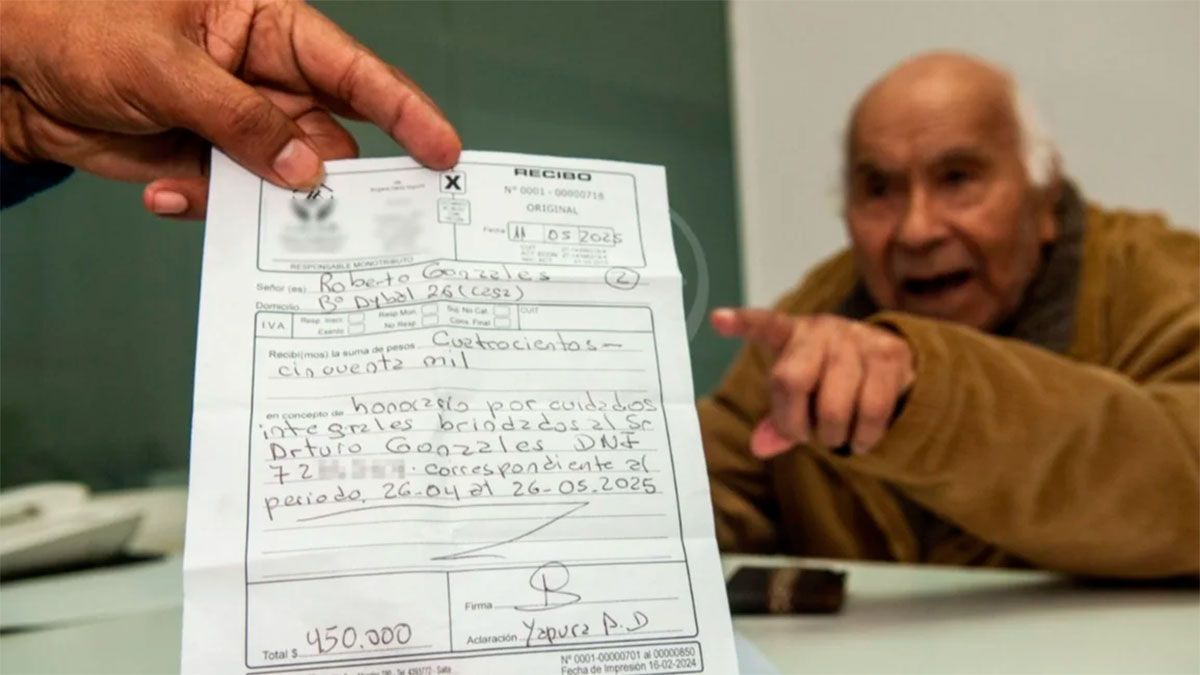 RECIBO
X
N° 0001 - 00000718
ORIGINAL
Fecha 11 05 2025
RESPONSABLE MONOTRIBUTO
Señor (es) Roberto Gonzales 2
Domicilio B° Dybal 26 (casa)
IVA Resp. Inscr. Resp Mon. Suj. No Cat. CUIT
Exento No Resp. Cons. Final
Recibi(mos) la suma de pesos Cuatrocientos
cincuenta mil
en concepto de honorario por cuidados
integrales brindados al Sr
Arturo Gonzales DNI
72 . correspondiente al
periodo. 26-04 al 26-05.2025
Firma
Total $ 450.000
Aclaración Yapura A.D
N° 0001-00000701 al 00000850
Fecha de Impresión 16-02-2024